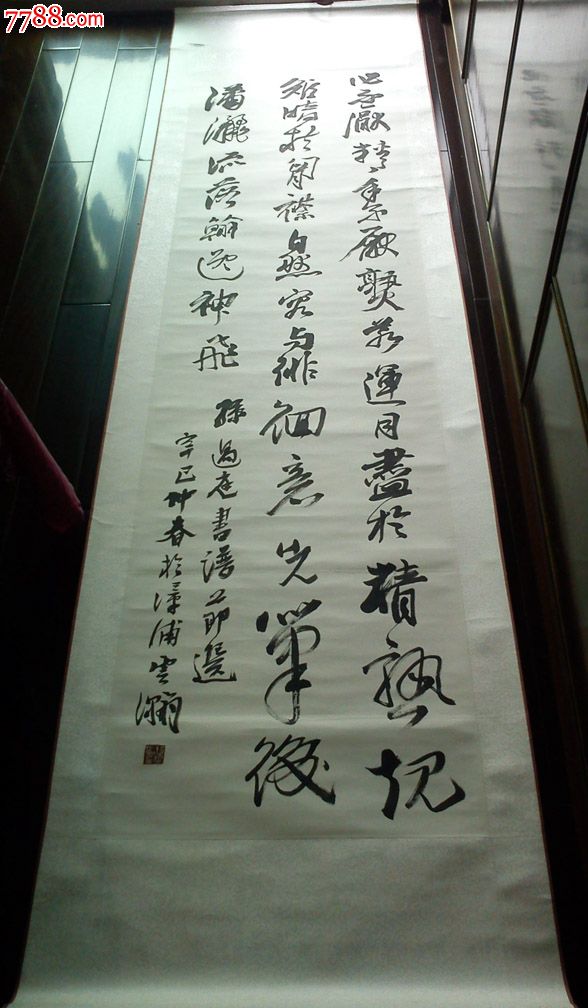 7788.com
心不厭精手不厭熟若運用盡於精熟規
矩暗於胷襟自然容與徘徊意先筆後
瀟灑流落翰逸神飛
孫過庭書譜節選
辛巳仲春於漳浦雲